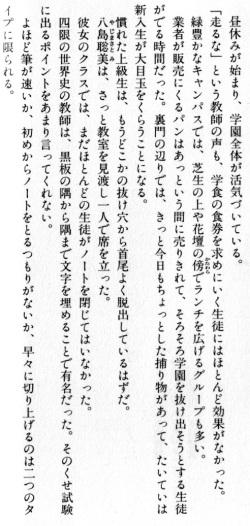 昼休みが始まり、学園全体が活気づいている。
「走るな」という教師の声も、学食の食券を求めにいく生徒にはほとんど効果がなかった。
緑豊かなキャンパスでは、芝生の上や花壇の傍でランチを広げるグループも多い。
業者が販売にくるパンはあっという間に売りきれて、そろそろ学園を抜け出そうとする生徒
がでる時間だった。裏門の辺りでは、きっと今日もちょっとした捕り物があって、たいていは
新入生が大目玉をくらうことになる。
慣れた上級生は、もうどこかの抜け穴から首尾よく脱出しているはずだ。
八島聡美は、さっと教室を見渡し一人で席を立った。
彼女のクラスでは、まだほとんどの生徒がノートを閉じてはいなかった。
四限の世界史の教師は、黒板の隅から隅まで文字を埋めることで有名だった。そのくせ試験
に出るポイントをあまり言ってくれない。
よほど筆が速いか、初めからノートをとるつもりがないか、早々に切り上げるのは二つのタ
イプに限られる。